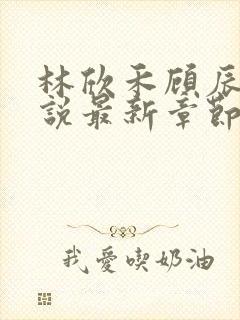 林欣禾顾辰
說最新章節
我愛喫奶油